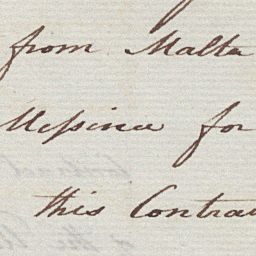 from Malta
Messina for
this Contrac